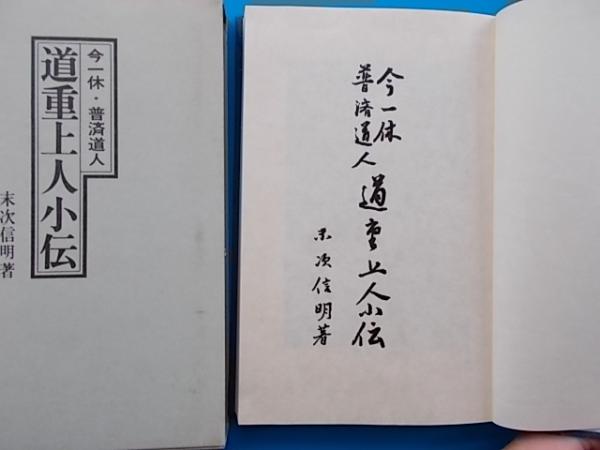 今一休・普済道人
道重上人小伝
末次信明著
今一休
普済道人
道重上人小伝
末次信明著